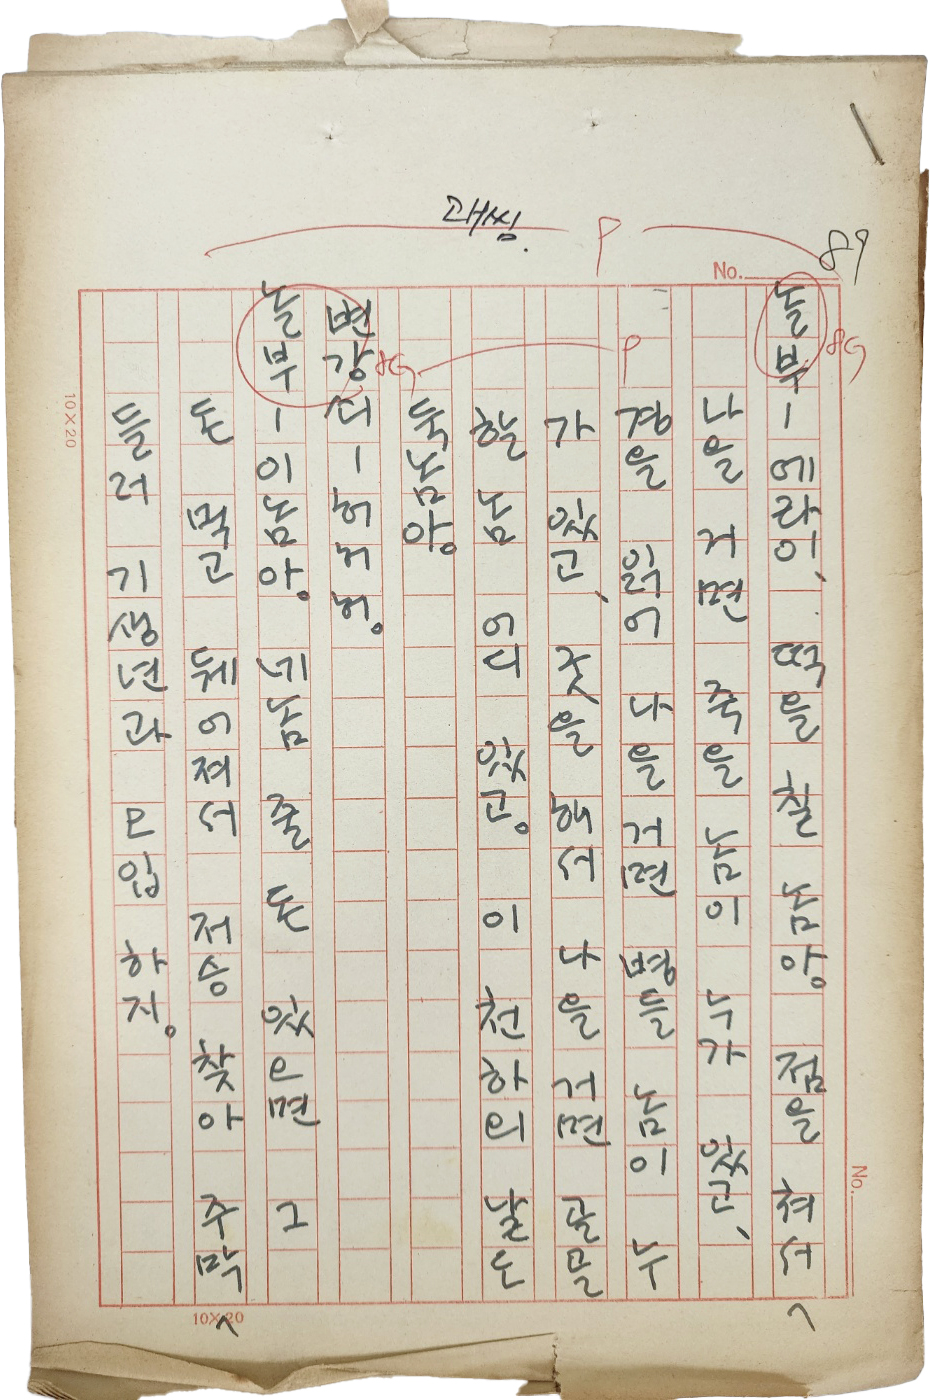 89
괘씸.
P
No.
놀부ㅡ에라이, 떡을 칠 놈아. 점을 쳐서
8G
나을 거면 죽을 놈이 누가 있고,
P
경을 읽어 나을 거면 병들 놈이 누
가 있고, 굿을 해서 나을 거면 골골
할 놈 어디 있고. 이 천하의 날도
둑놈아.
8G
변강쇠ㅡ허허허.
놀부ㅡ이놈아. 네놈 줄 돈 있으면 그
돈 먹고 뒈어져서 저승 찾아 주막
들러 기생년과 오입 하지.
10X20
10X20
No.